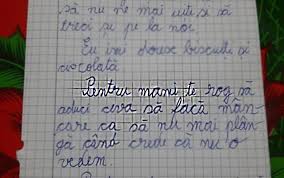 să nu ne mai uite și să
treci și pe la noi.
Eu îmi doresc biscuiți și
ciocolată.
Pentru mami te rog să
aduci ceva să facă mân-
care ca să nu mai plân-
gă când crede că nu o
vedem.